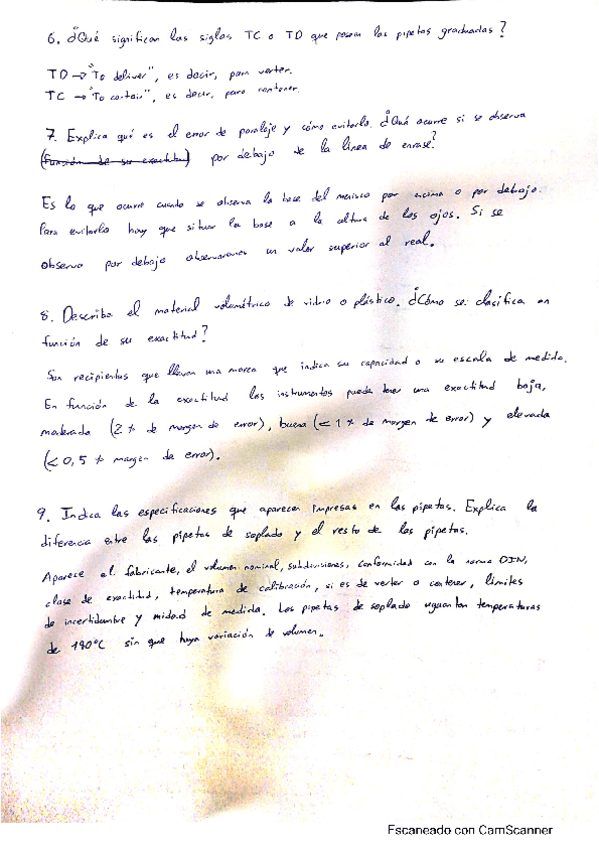 6. ¿Qué significan las siglas TC o TD que poseen las pipetas graduadas?
TD → "To deliver", es decir, para verter.
TC → "To contain", es decir, para contener.
7. Explica qué es el error de paralaje y cómo evitarlo. ¿Qué ocurre si se observa
(función de su exactitud) por debajo de la línea de enrase?
Es lo que ocurre cuando se observa la base del menisco por encima o por debajo.
Para evitarlo hay que situar la base a la altura de los ojos. Si se
observa por debajo observaremos un valor superior al real.
8. Describa el material volumétrico de vidrio o plástico. ¿Cómo se clasifica en
función de su exactitud?
Son recipientes que llevan una marca que indica su capacidad o su escala de medida.
En función de la exactitud los instrumentos puede tener una exactitud baja,
moderada (2 % de margen de error), buena (< 1 % de margen de error) y elevada
(< 0,5 % margen de error).
9. Indica las especificaciones que aparecen impresas en las pipetas. Explica la
diferencia entre las pipetas de soplado y el resto de las pipetas.
Aparece el fabricante, el volumen nominal, subdivisiones, conformidad con la norma DIN,
clase de exactitud, temperatura de calibración, si es de verter o contener, límites
de incertidumbre y unidad de medida. Las pipetas de soplado aguantan temperaturas
de 180°C sin que haya variación de volumen.
Escaneado con CamScanner